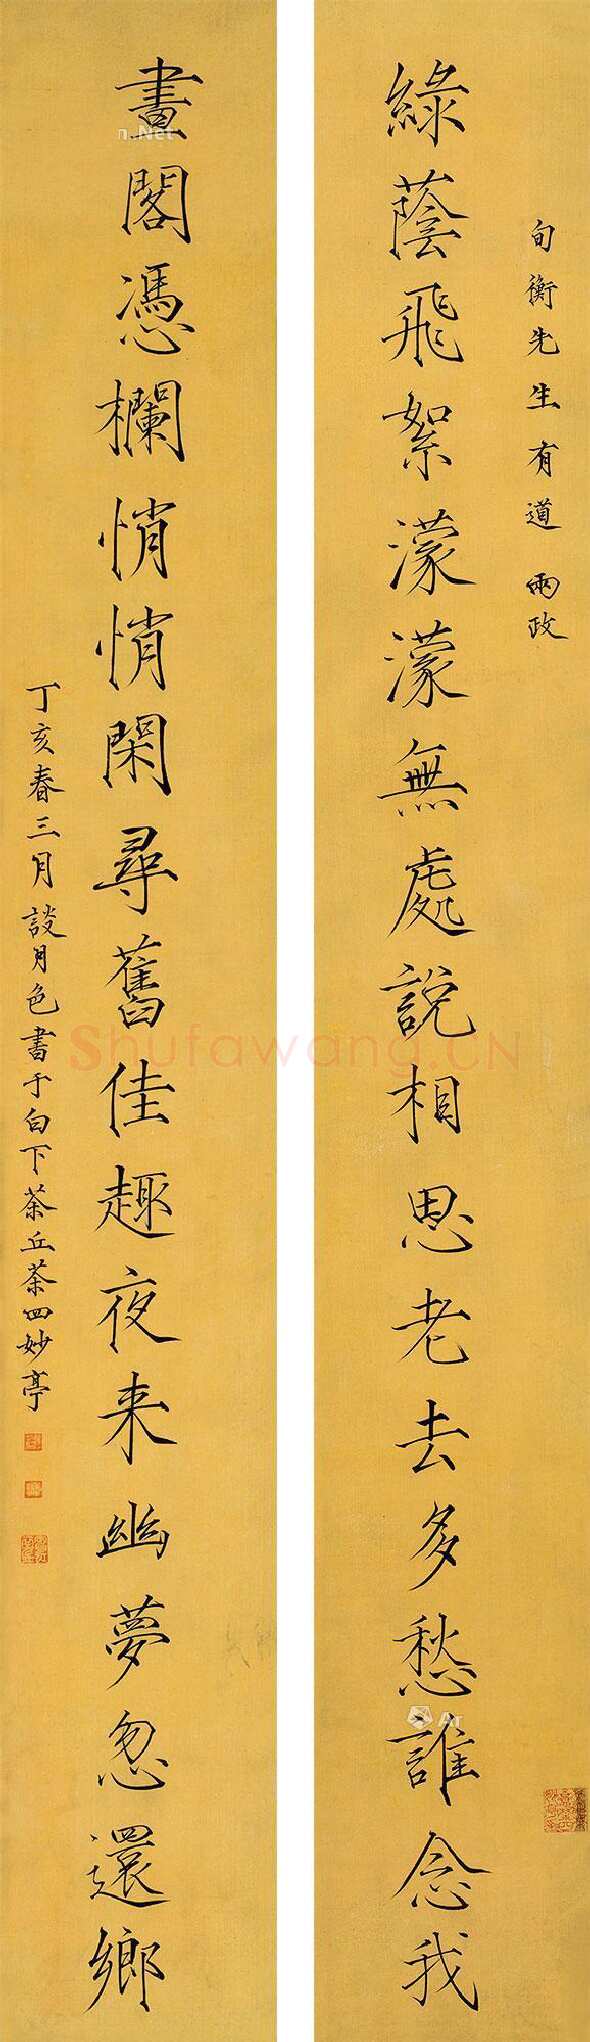 旬衡先生有道兩政
綠蔭飛絮濛濛無處說相思老去多愁誰念我
畫閣憑欄悄悄閑尋舊佳趣夜来幽夢忽還鄉
丁亥春三月談月色書于白下茶丘茶四妙亭
Shufawang.CN
n.Net
Ar